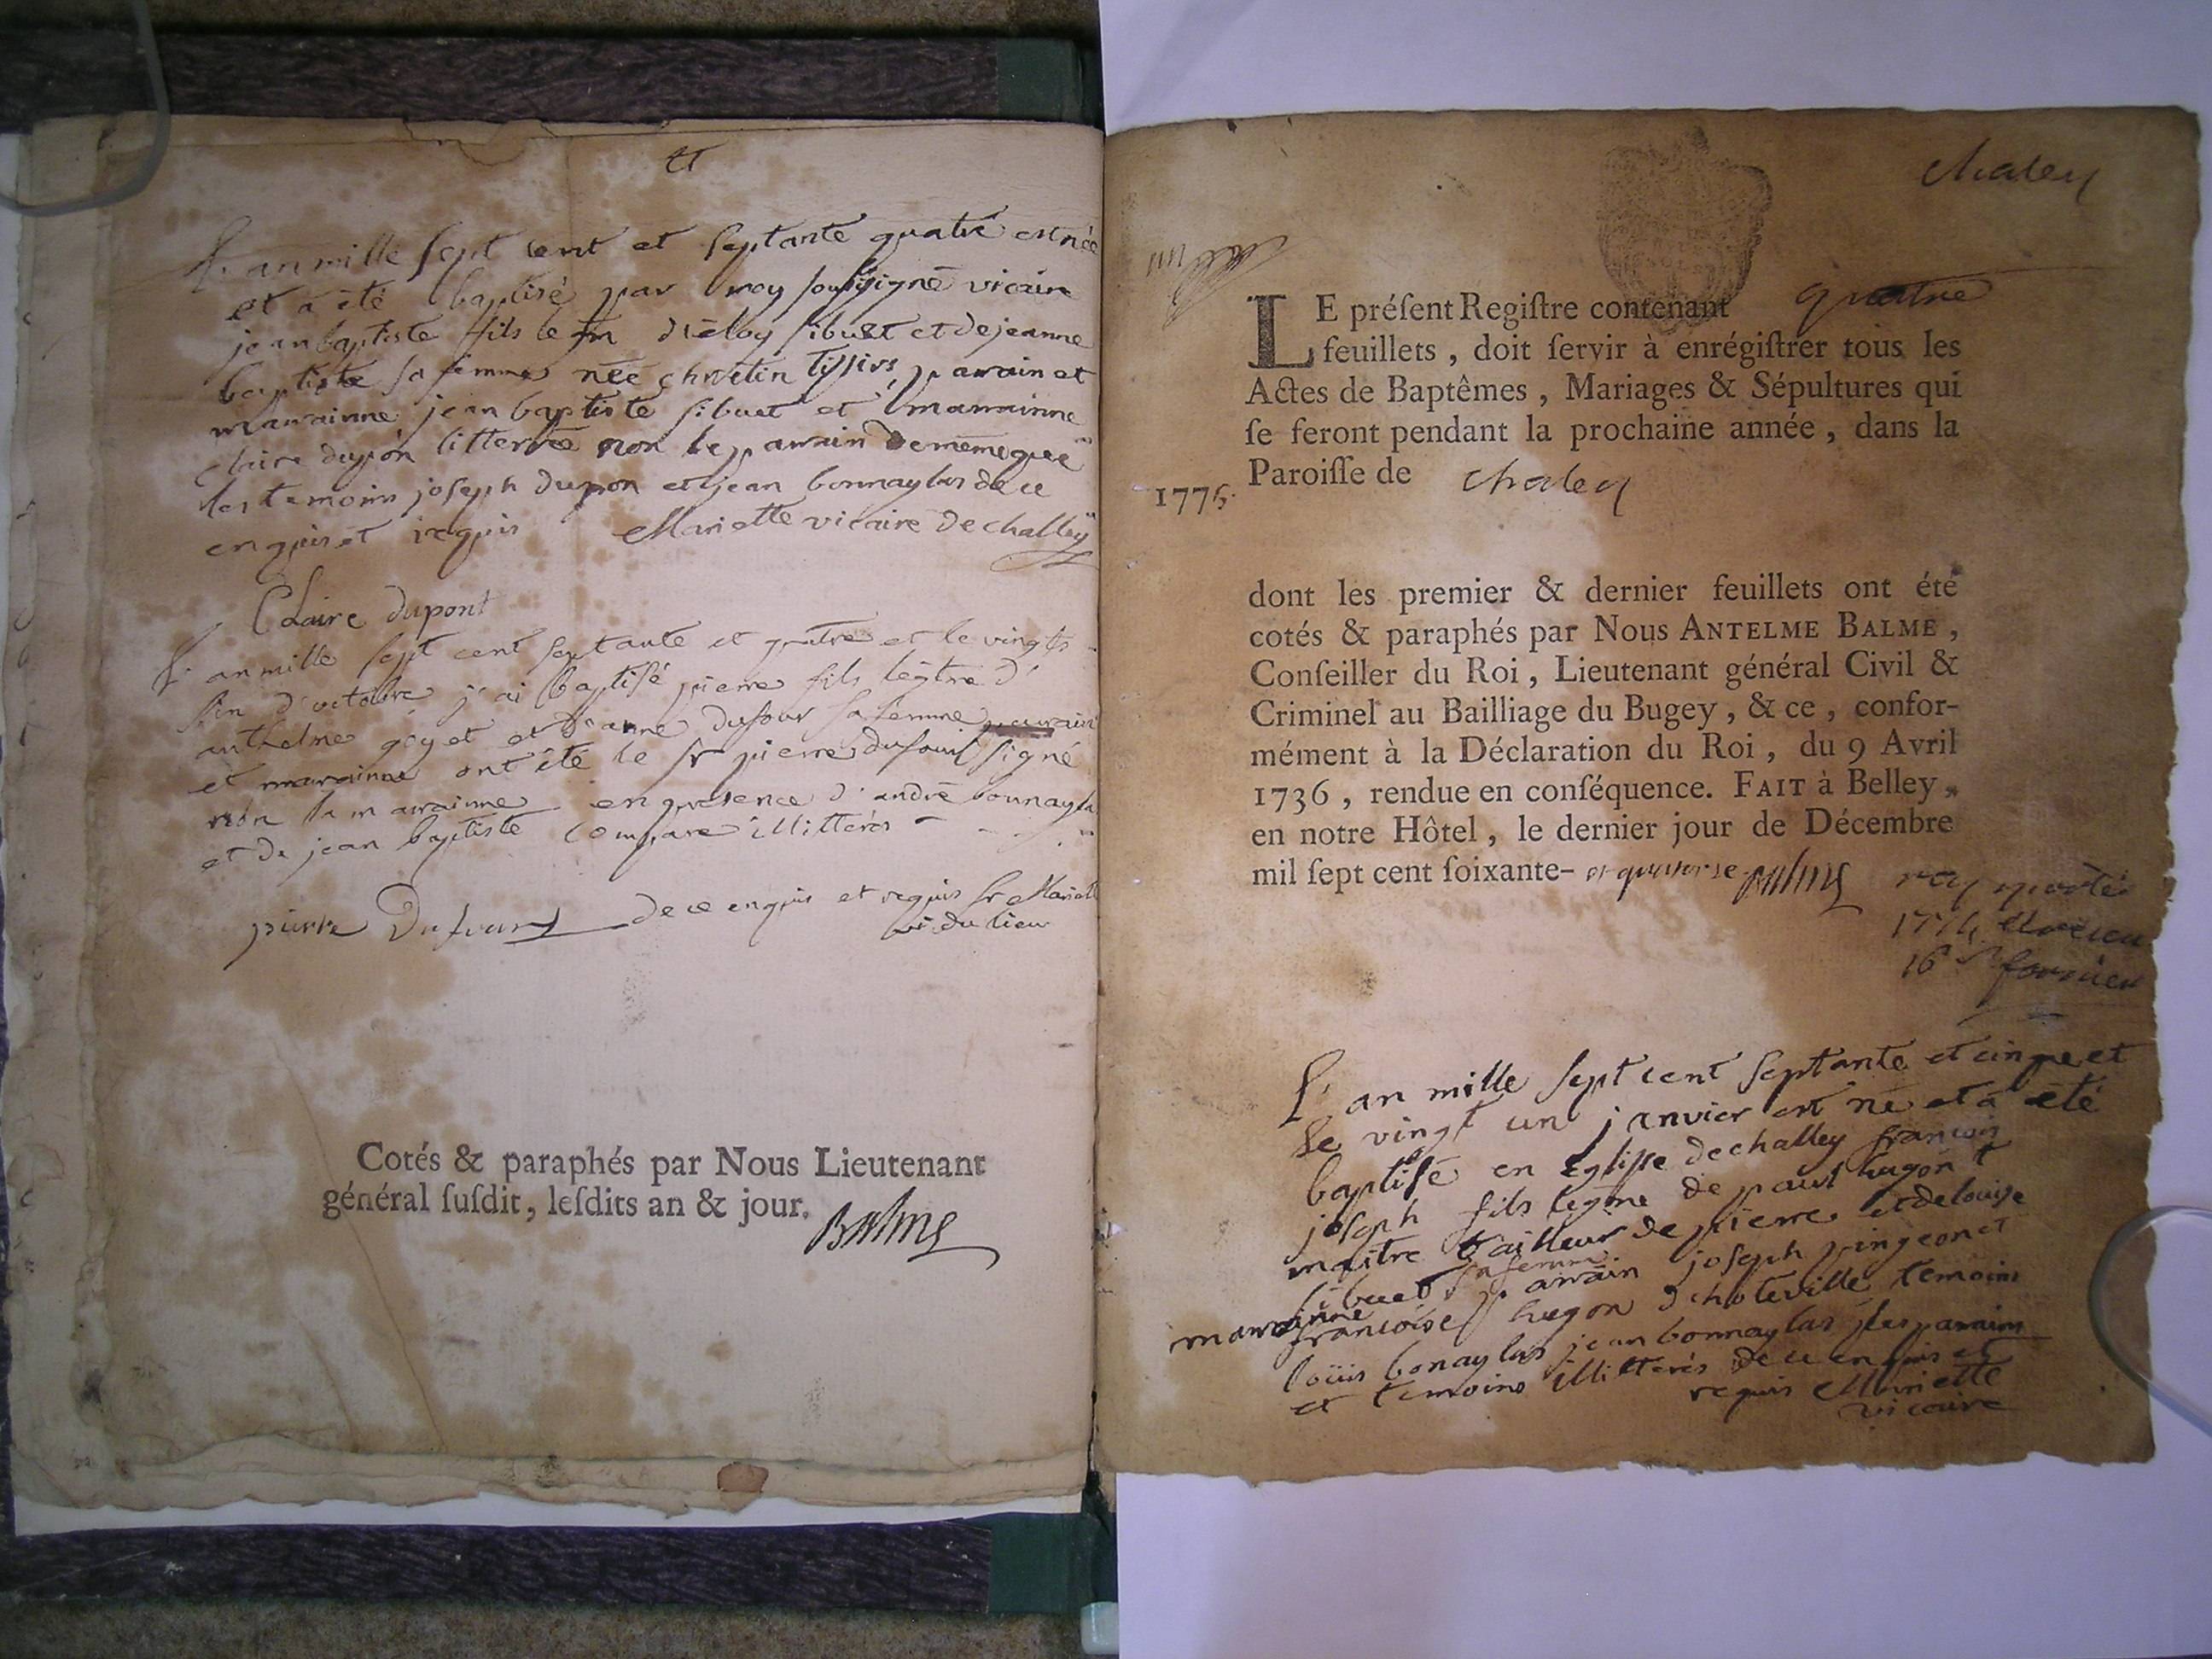 L'an mille sept cent et septante quatre est née
et a été baptisé par moy soussigné vicaire
jean baptiste fils d'éloy sibuet et de jeanne
baptiste sa femme née chrétin parrain et
marrainne jean baptiste sibuet et marrainne
claire dupon litterée non le parrain de même que
les temoins joseph dupon et jean bonnaylas de ce
enquis et requis Mariette vicaire de challey
Claire dupont
L'an mille sept cent septante et quatre et le vingts
d'octobre j'ai baptisé pierre fils légtme d'
anthelme goyet et d'anne dufour sa femme parrain
et marrainne ont été le sr pierre dufour signé
non la marrainne en presence d'andré bonnaylas
et de jean baptiste compare illitterés
pierre Dufour de ce enquis et requis Mariette
vic. du lieu
Cotés & paraphés par Nous Lieutenant
général ſuſdit, leſdits an & jour.
Balme
chaley
LE préſent Regiſtre contenant quatre
feuillets, doit ſervir à enrégiſtrer tous les
Actes de Baptêmes, Mariages & Sépultures qui
ſe feront pendant la prochaine année, dans la
Paroiſſe de chaley
1775.
dont les premier & dernier feuillets ont été
cotés & paraphés par Nous ANTELME BALME,
Conſeiller du Roi, Lieutenant général Civil &
Criminel au Bailliage du Bugey, & ce, confor-
mément à la Déclaration du Roi, du 9 Avril
1736, rendue en conſéquence. FAIT à Belley,
en notre Hôtel, le dernier jour de Décembre
mil ſept cent ſoixante- et quatorze. Balme
L'an mille sept cent septante et cinque et
le vingt un janvier est né et a été
baptisé en Eglise de challey françois
joseph fils legtme de paul hugon
maître tailleur de pierre et de louise
sibuet sa femme parrain joseph pingeon et
marrainne françoise hugon d'hoteville temoins
loüis bonaylas jean bonnaylas les parrains
et temoins illitterés de ce enquis et
requis Mariette
vicaire